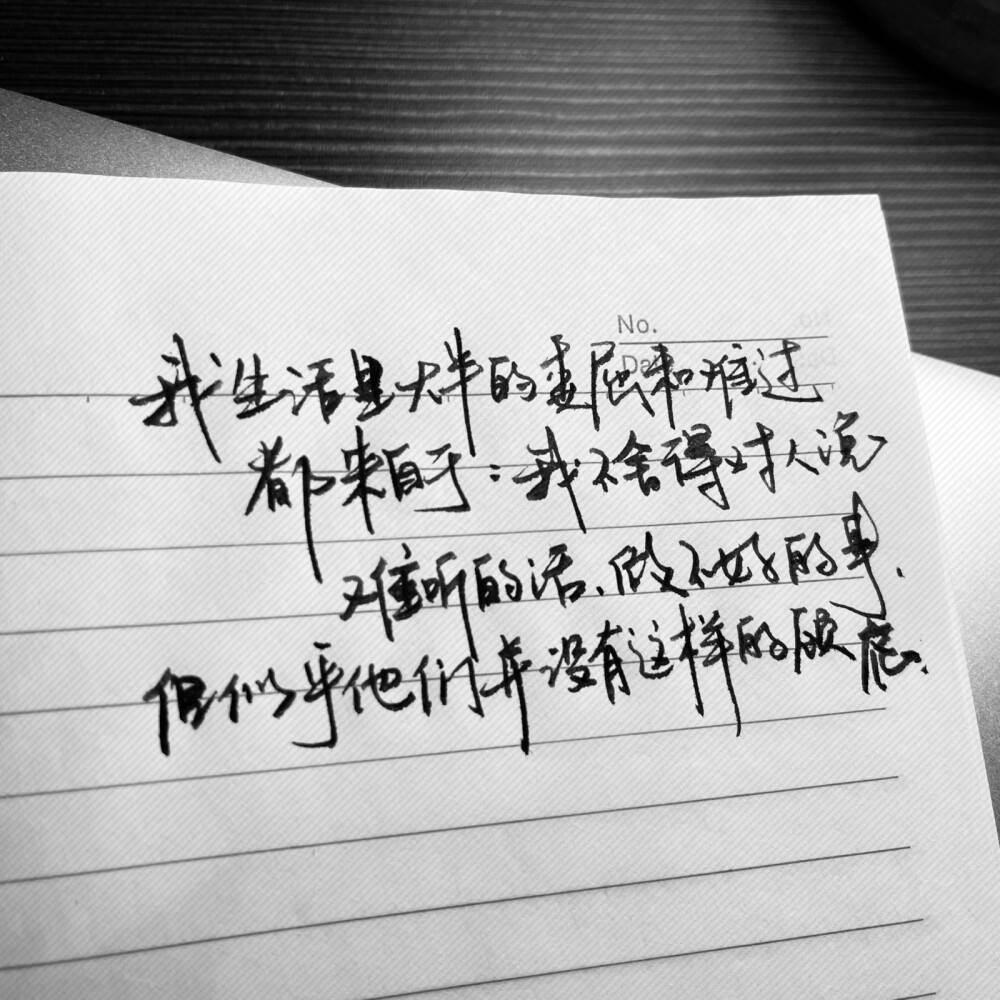 No.
Da
我生活里大半的委屈和难过
都来自于:我不舍得对人说
难听的话、做不好的事.
但似乎他们并没有这样的顾虑.